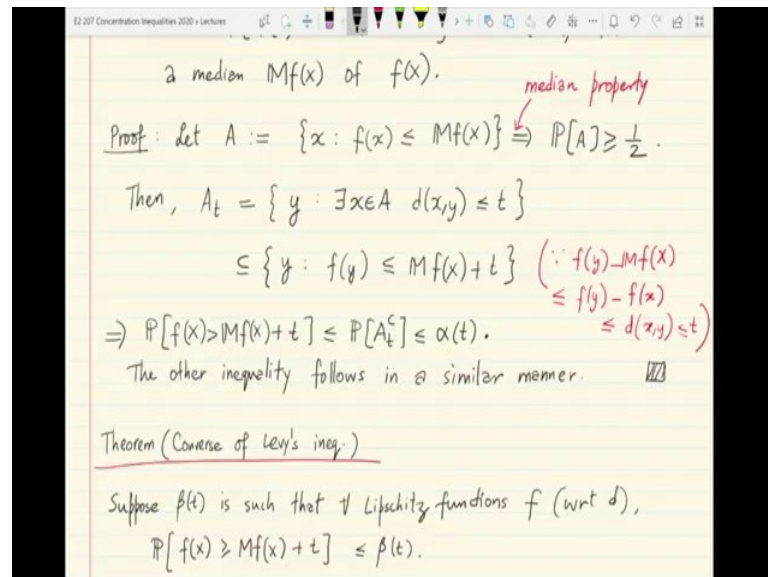 E2 207 Concentration Inequalities 2020 » Lectures
a median Mf(X) of f(X).
median property
Proof: Let A := {x : f(x) ≤ Mf(X)} ⇒ ℙ[A] ≥ 1/2.
Then, A_t = { y : ∃x∈A d(x,y) ≤ t }
⊆ { y : f(y) ≤ Mf(X)+t } (∵ f(y)-Mf(X)
≤ f(y) - f(x)
≤ d(x,y) ≤ t)
⇒ ℙ[f(X)>Mf(X)+t] ≤ ℙ[A_t^c] ≤ α(t).
The other inequality follows in a similar manner.
Theorem (Converse of Levy's ineq.)
Suppose β(t) is such that ∀ Lipschitz functions f (wrt d),
ℙ[f(X) ≥ Mf(X)+t] ≤ β(t).